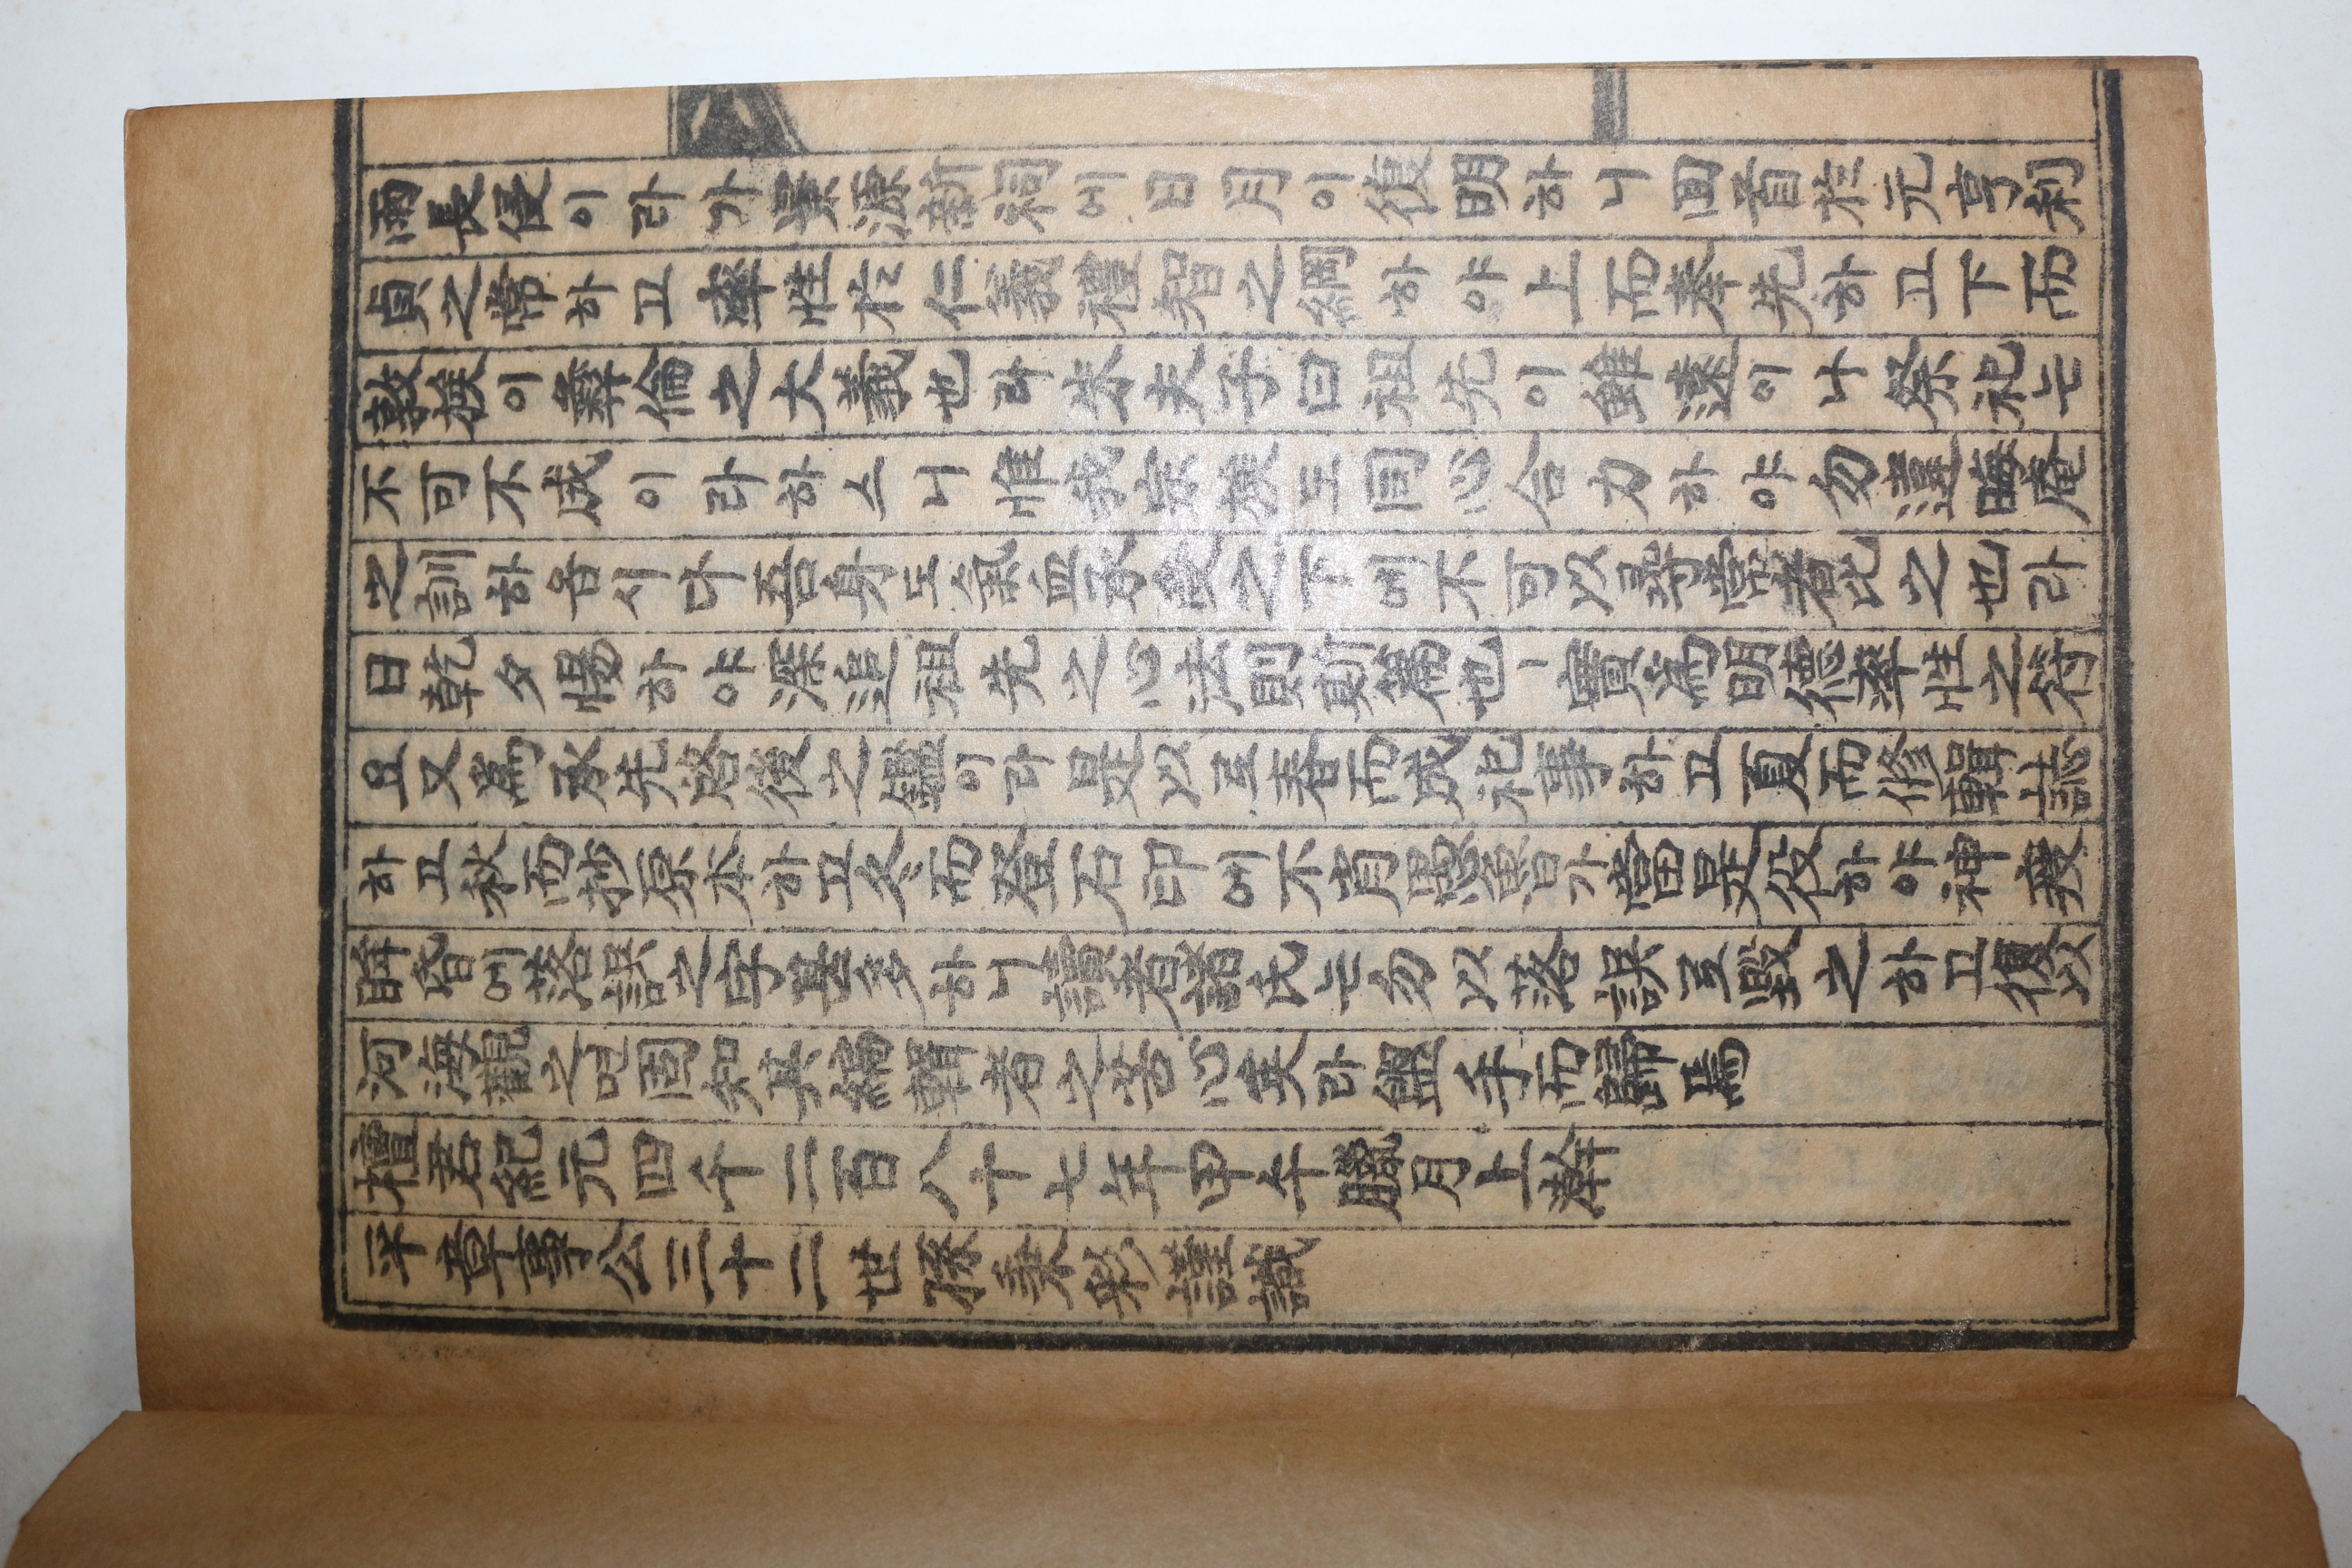 雨長侵이라가景源新祠에日月이復明하니回首於元亨利
貞之常하고率性於仁義禮智之綱하야上而奉先하고下而
敦族이彛倫之大義也라朱夫子曰祖先이雖遠이나祭祀는
不可不成이라하스니惟我宗族도同心合力하야勿違晦庵
之訓하옴시다吾身도氣血承受之下에不可以尋常者比之也라
日乾夕惕하야深追祖先之心法則斯篇也ㅣ實爲明德率性之符
요又爲承先啓後之鑑이라是以로春而成祀事하고夏而修輯誌
하고秋而抄原本하고冬而登石印에不肖愚魯가當是役하야神疲
眸昏에落誤之字甚多하니讀者諸氏는勿以落誤로毀之하고復以
河海觀之면固知其編輯者之苦心矣라盥手而歸焉
檀君紀元四千二百八十七年甲午臘月上澣
平章事公三十二世孫秉彩謹識